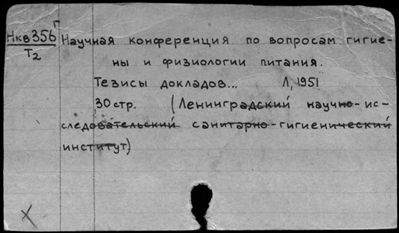 Нкв356 Г
Т2
Научная конференция по вопросам гигие-
ны и физиологии питания.
Тезисы докладов... Л, 1951
30 стр. (Ленинградский научно-ис-
следовательский санитарно-гигиенический
институт)
X